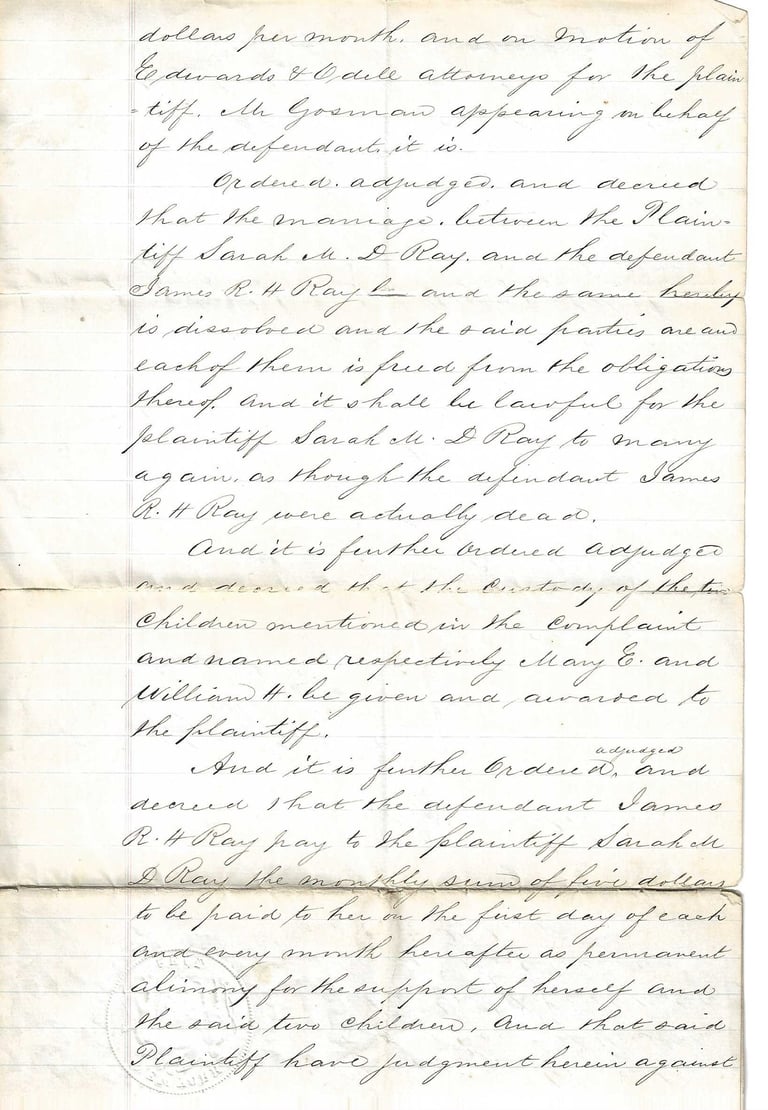 dollars per month. and on motion of
Edwards & Odell attorneys for the plain
-tiff. Mr Gosman appearing on behalf
of the defendant. it is.
Ordered. adjudged. and decreed
that the marriage. between the Plain-
tiff Sarah M. D Ray. and the defendant
James R. H Ray be and the same hereby
is dissolved and the said parties are and
each of them is freed from the obligations
thereof. and it shall be lawful for the
plaintiff Sarah M. D Ray to marry
again. as though the defendant James
R. H Ray were actually dead.
And it is further Ordered adjudged
and decreed that the custody of the two
Children mentioned in the Complaint
and named respectively Mary E. and
William H. be given and awarded to
the plaintiff.
And it is further Ordered, adjudged and
decreed that the defendant James
R. H Ray pay to the plaintiff Sarah M
D Ray the monthly sum of five dollars
to be paid to her on the first day of each
and every month hereafter as permanent
alimony for the support of herself and
the said two children. And that said
Plaintiff have judgment herein against